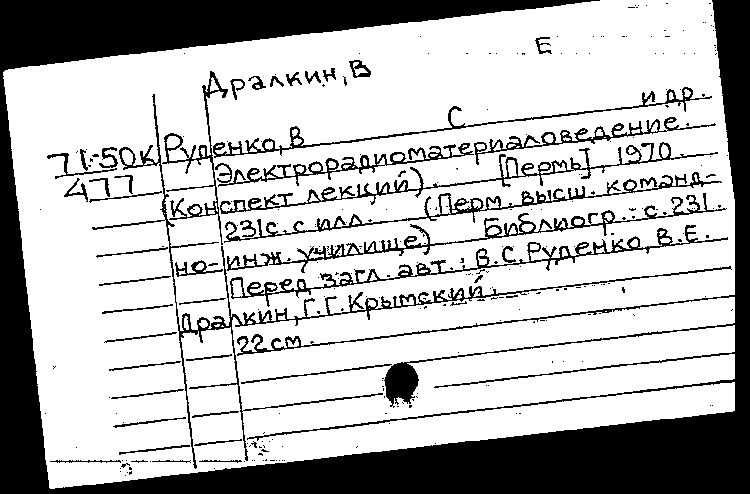 Дралкин, В Е
71-50к Руденко, В С и др.
477 Электрорадиоматериаловедение.
(Конспект лекций). [Пермь], 1970.
231с. с илл. (Перм. высш. команд-
но-инж. училище) Библиогр.: с. 231.
Перед загл. авт.: В.С.Руденко, В.Е.
Дралкин, Г.Г.Крымский.
22 см.